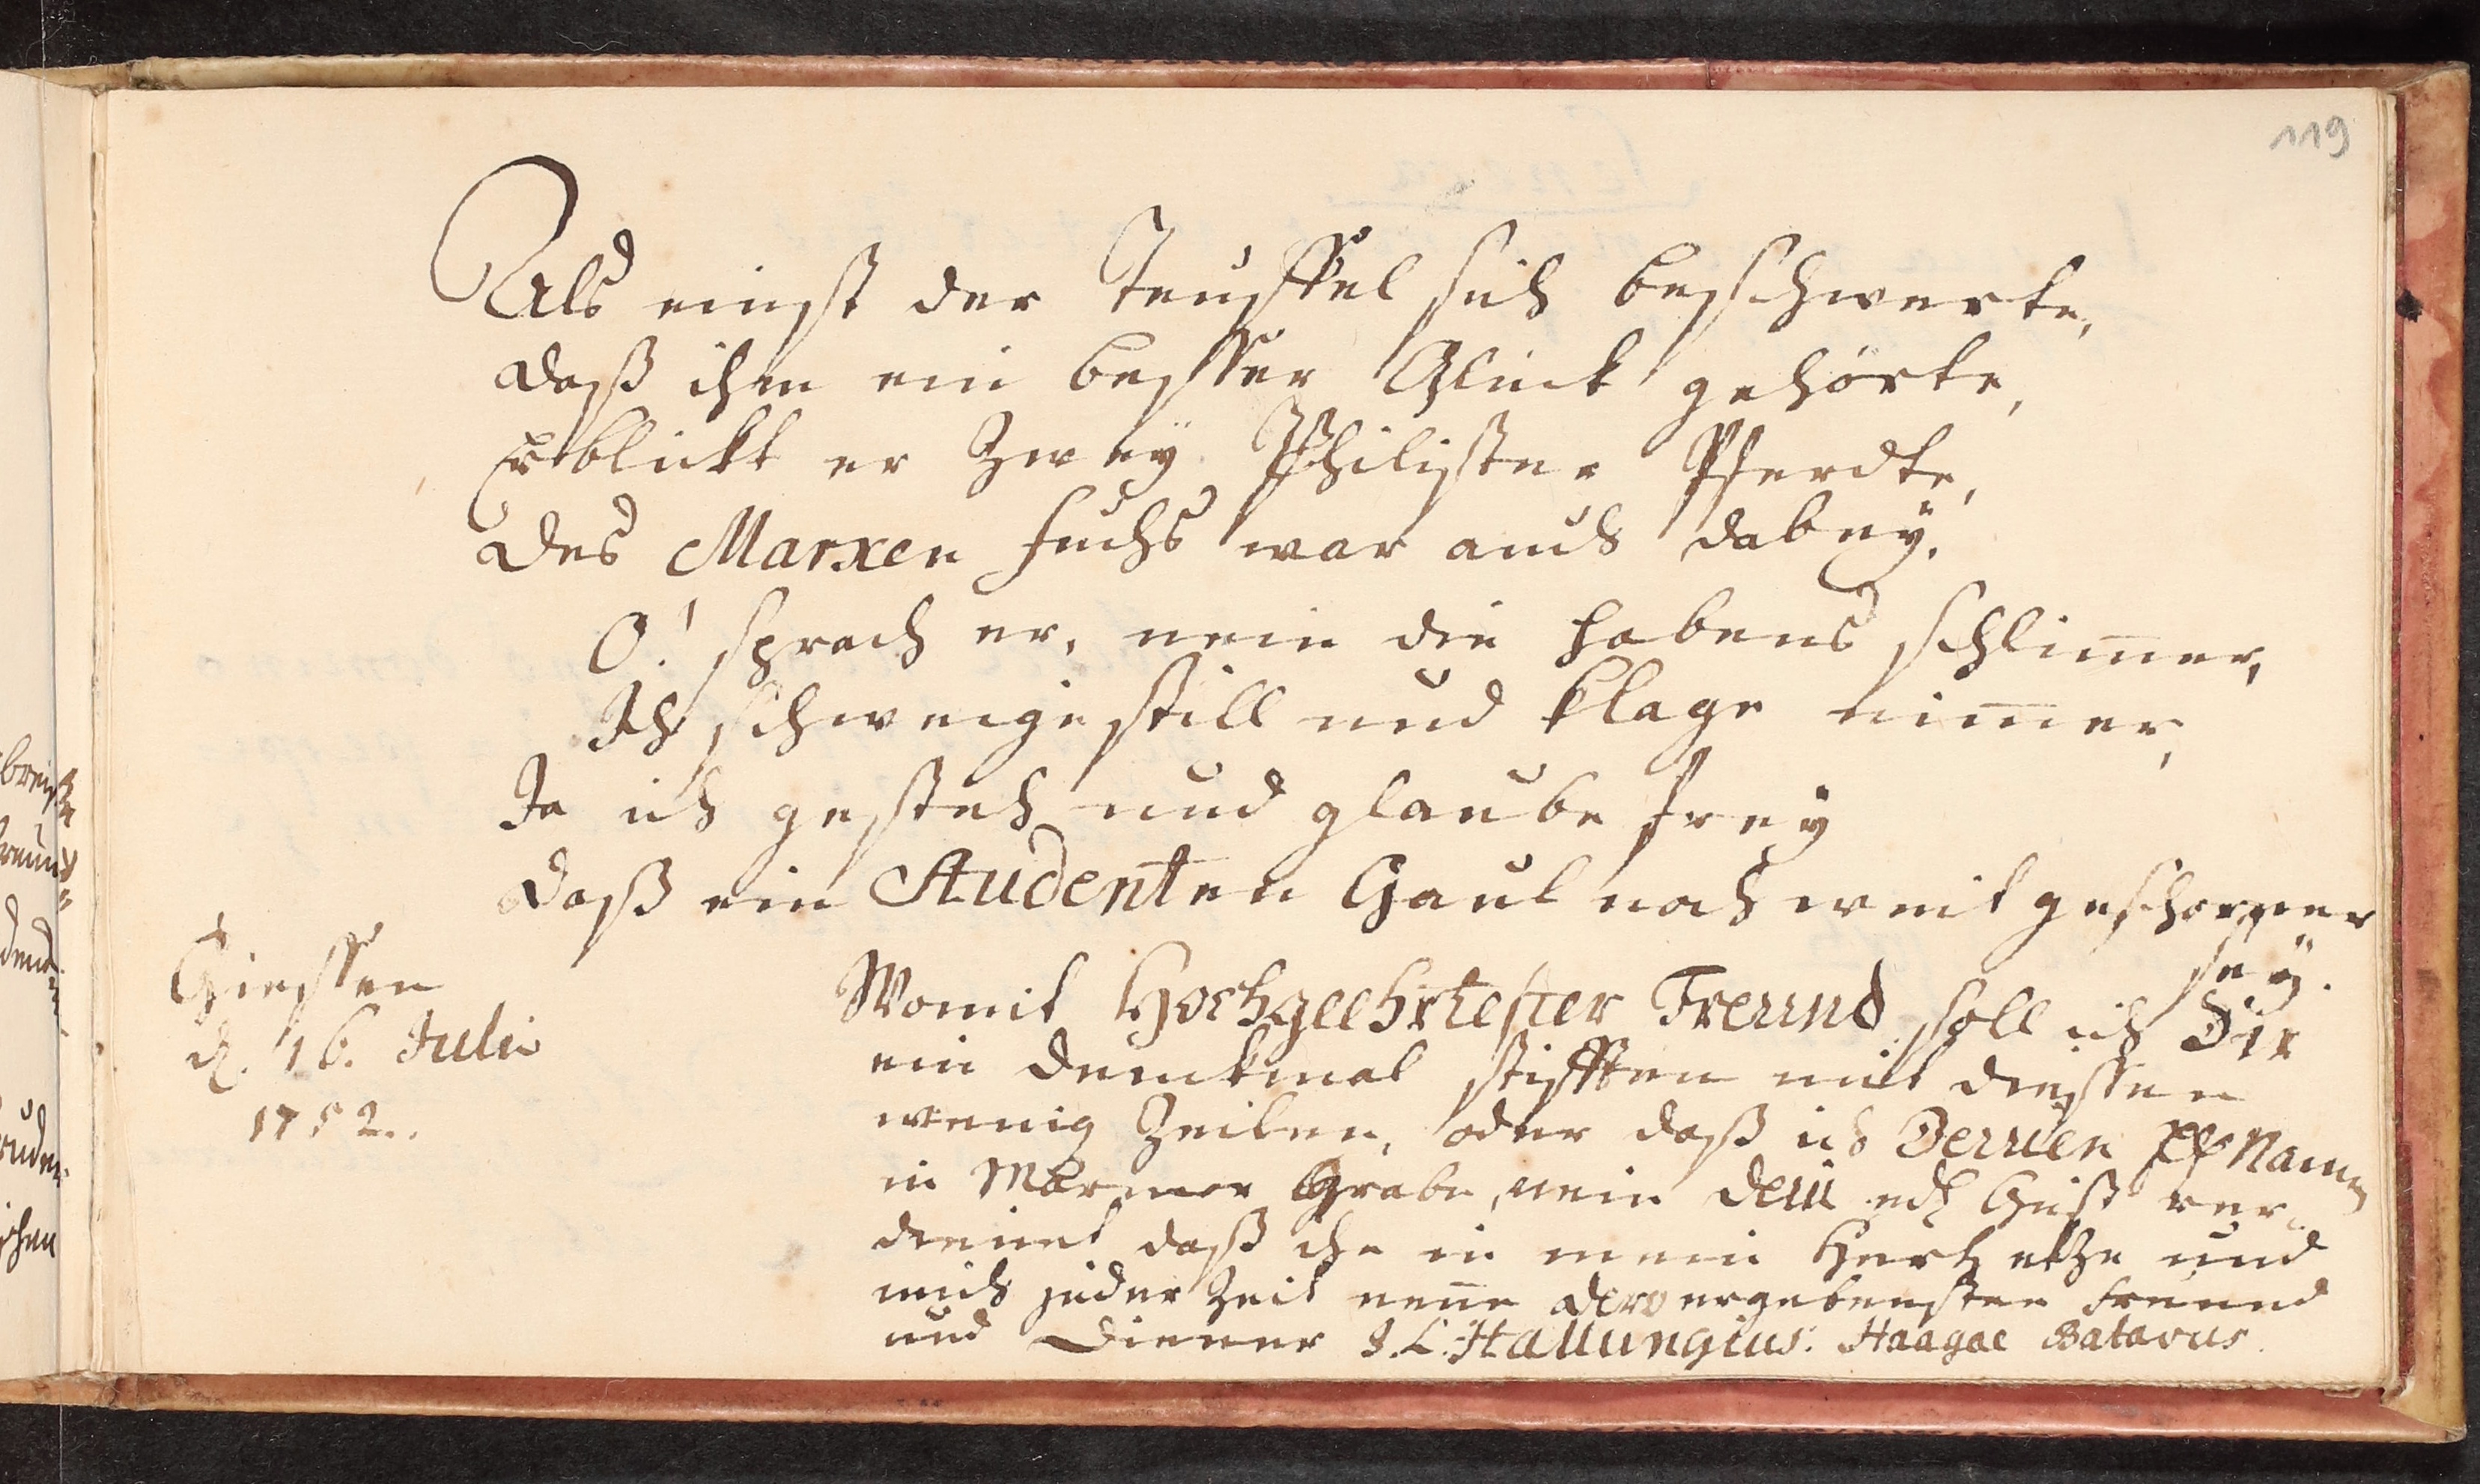 119
Als einst der Teuffel sich beschwerte,
daß ihm ein besser Glück gehörte,
Erblickt er zwey Philister Pferdte,
des Marxen fuchs war auch dabey.
O! sprach er, nein die habens schlim̄er,
Ich schweige still und klage nim̄er,
Ja ich gesteh und glaube frey
daß ein Studenten Gaul noch weit geschorner
sey.
Giessen
d. 16. Julii
1752.
Womit Hochgeehrtester Freund soll ich Dir
ein Denckmal stifften mit diessen
wenig Zeilen, oder daß ich Deinen Nam̄
in Marmor Grabe, nein Dein edl Geist ver-
dienet daß ihn in mein Hertz etze und
mich jeder Zeit nen̄e dero ergebensten freund
und Diener J. L. Hallungius. Haagae Batavus.